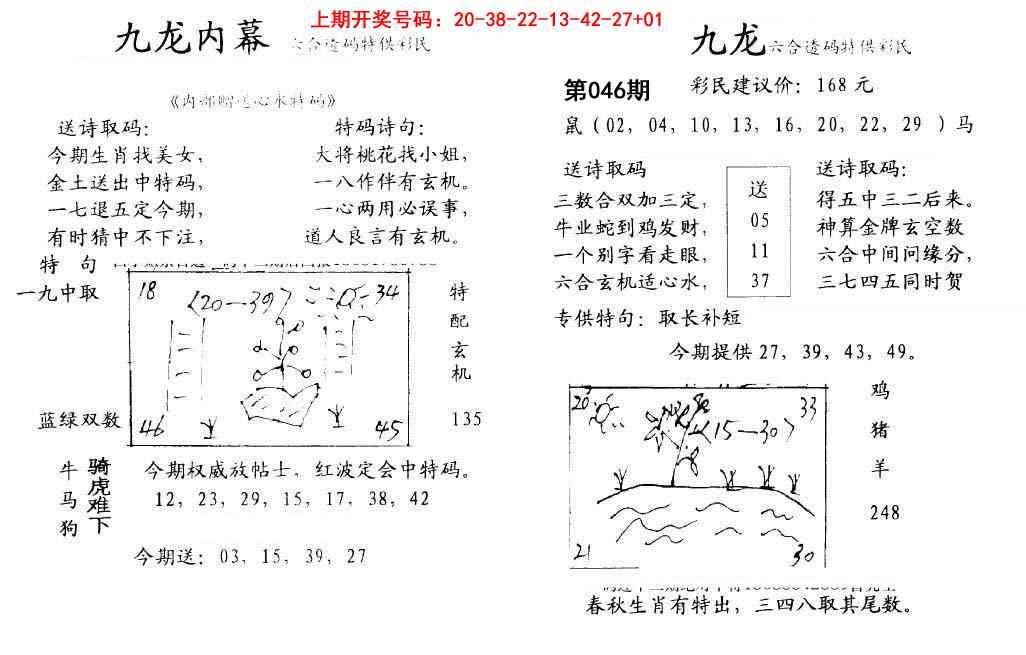 上期开奖号码：20-38-22-13-42-27+01
九龙内幕 六合透码特供彩民
《内部赠送心水特码》
送诗取码：
今期生肖找美女，
金土送出中特码，
一七退五定今期，
有时猜中不下注，
特码诗句：
大将桃花找小姐，
一八作伴有玄机。
一心两用必误事，
道人良言有玄机。
特 句
一九中取
蓝绿双数
18
〈20—39〉
34
46
45
特
配
玄
机
135
牛
马
狗
骑
虎
难
下
今期权威放帖士，红波定会中特码。
12，23，29，15，17，38，42
今期送：03，15，39，27
九龙六合透码特供彩民
第046期 彩民建议价：168元
鼠（02，04，10，13，16，20，22，29 ）马
送诗取码
三数合双加三定，
牛业蛇到鸡发财，
一个别字看走眼，
六合玄机适心水，
送
05
11
37
送诗取码：
得五中三二后来。
神算金牌玄空数
六合中间问缘分，
三七四五同时贺
专供特句：取长补短
今期提供27，39，43，49。
20
33
〈15—30〉
21
30
鸡
猪
羊
248
春秋生肖有特出，三四八取其尾数。